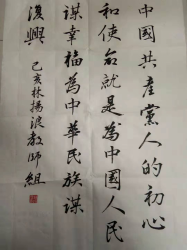 中國共產黨人的初心
和使命就是為中國人民
謀幸福為中華民族謀
復興
己亥林揚波教師組